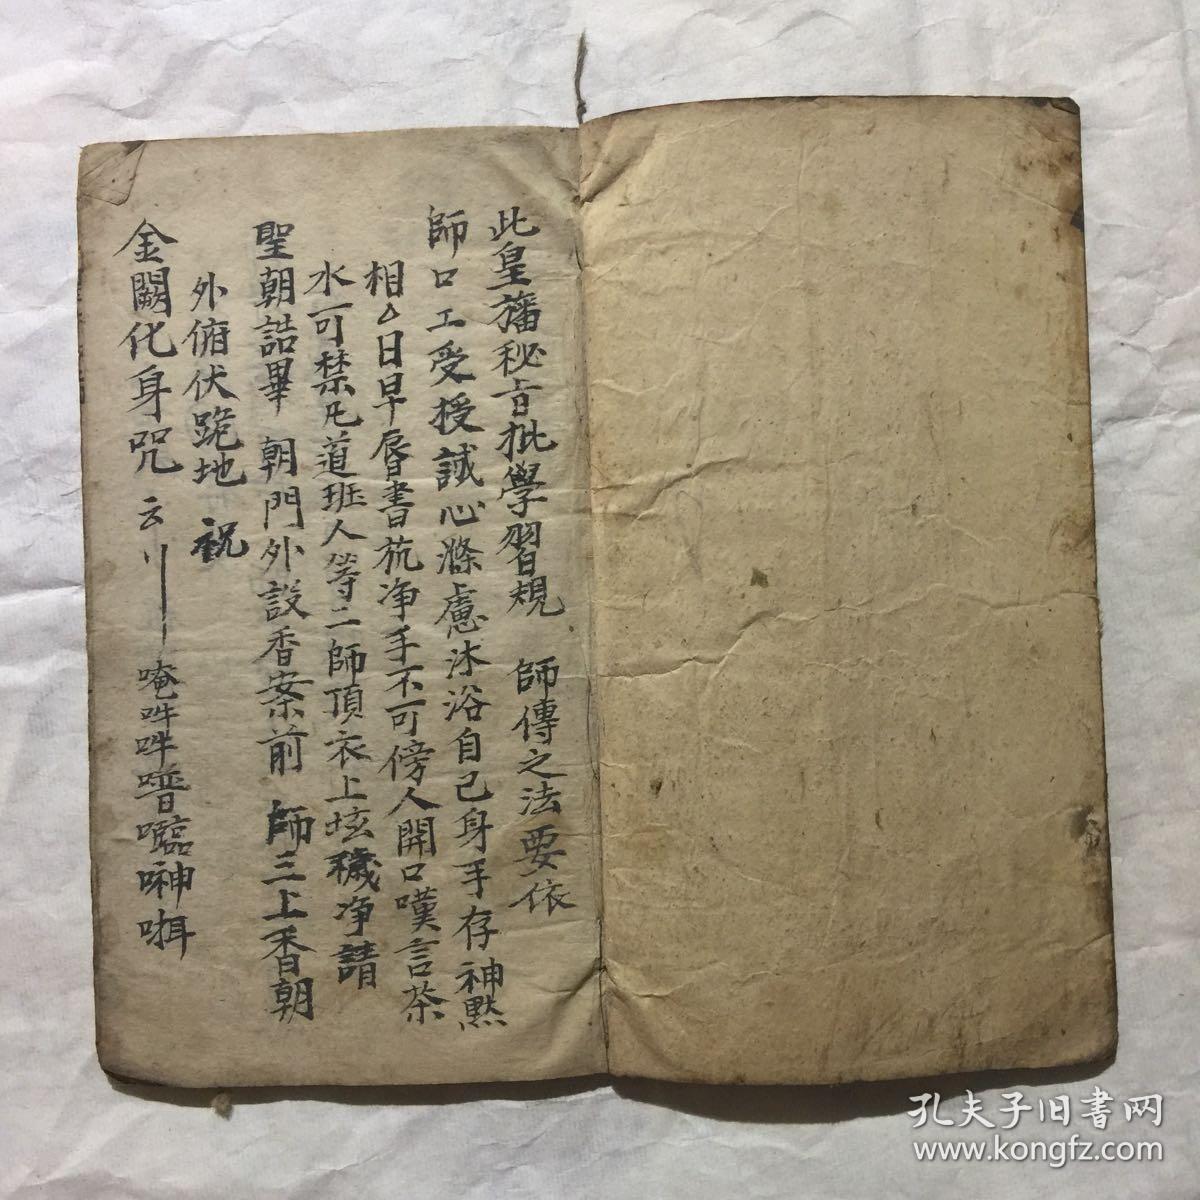 此皇旛秘旨批學習規 師傳之法要依
師口工受授誠心滌慮沐浴自己身手存神黙
相△日早唇書梳净手不可傍人開口嘆言茶
水可禁凡道班人等二師頂衣上坛穢净請
聖朝誥畢 朝門外設香案前 師三上香朝
外俯伏跪地 祝
金闕化身咒 云 唵吽吽噃㘊𠶔咡
孔夫子旧书网
www.kongfz.com